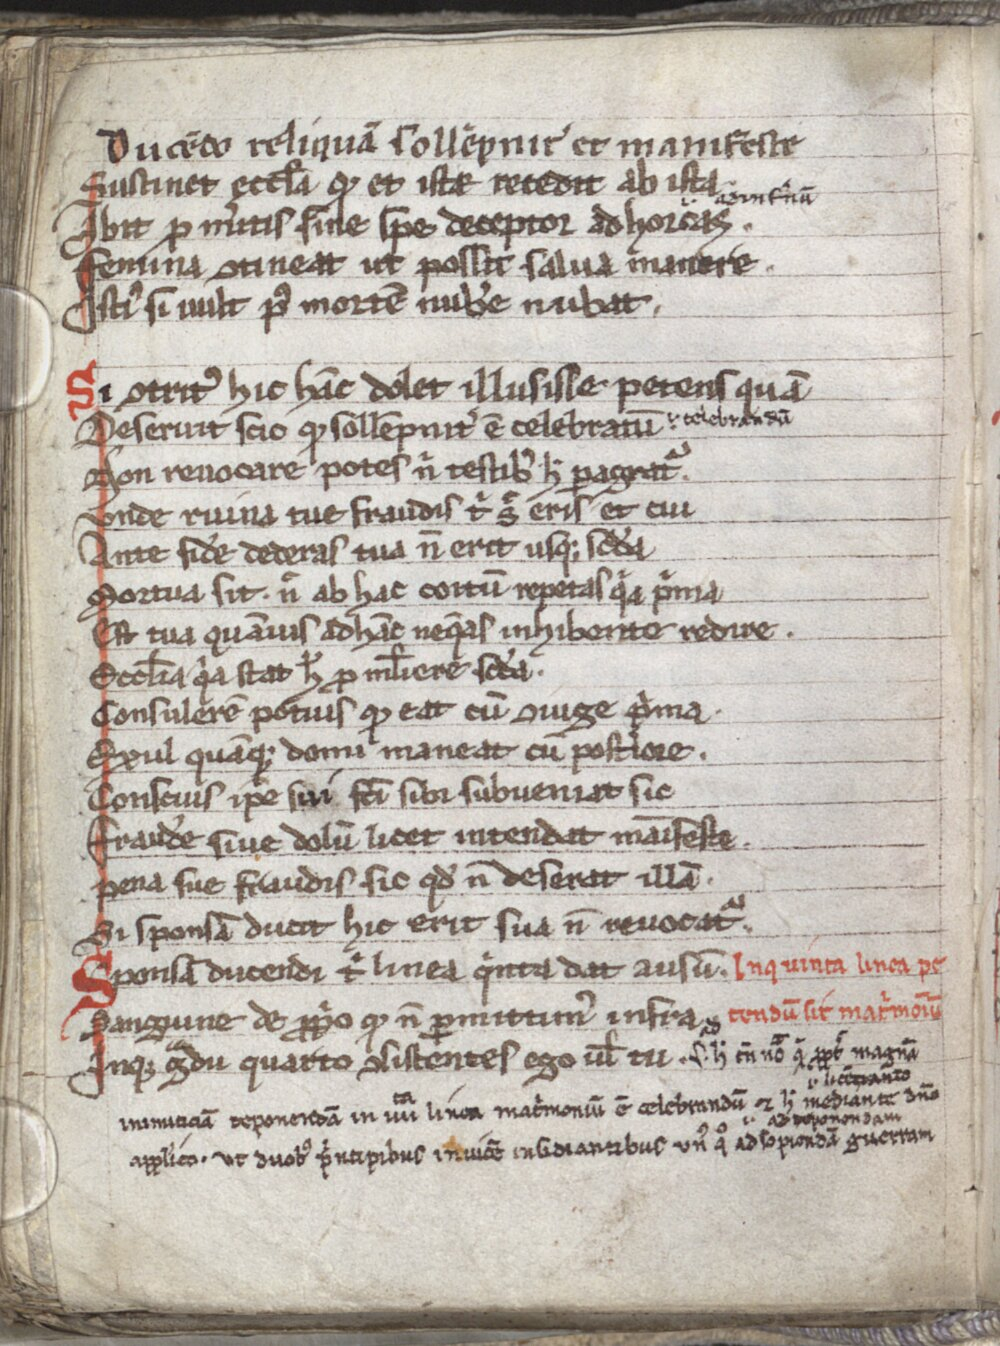 Ducẽdo reliquã sollẽpnit᷑ et manifeste
Sustinet eccl̃a qͥ et iste recedit ab ista
.i. ad infernũ
Ibit ꝑ m̃itis sine spe deceptor ad horcas.
Femina ꝯtineat ut possit salua manere.
Isti᷑ si uult pꝰ mortẽ nub̾e nubat.
Si ꝯtritꝰ hic hãc dolet illusisse petens quã
Deseruit scio qͥ sollẽpnit᷑ ẽ celebratũ
ł celebrandũ
Non reuocare potes ñ testibꝰ h̾ pagrat᷑.
Vnde ruina tue fraudis t͛ eris et cui
Ante fid̾e dederas tua ñ erit usqꝫ scd̾a
Mortua sit. ñ ab hac cortũ repetas qͣ pͥma
Est tua quãuis ad hãc neq̃as inhibente redire.
Eccl̃ia qͥa stat h̾ ꝓ ml̃iere scd̾a.
Consulerẽ potius qͥ eat cũ ꝯiuge pͥma.
Exul quãqꝫ domi maneat cũ postͥore.
Conscius ip̃e sui sc̃i sibi subueniat sic
Fraud̾e siue dolũ licet intendat maĩfeste.
pena sue fraudis sic qd̾ ñ deserat illã.
Si sponsã ducit hic erit sua ñ reuocat᷑.
Sponsã ducendi t͛ linea qͥnta dat ausũ. In quinta linea pe
Sanguine de ꝓpͥo qͥ ñ ꝑmittim᷑ infra tendũ sit mat͛moniũ
Inqꝫ gͣdu quarto ꝯsistentes ego ul̾ tu. S; h̾ tñ nõ qͥ ꝓpt̾ magnã
ł licẽciando
inimiciciã deponendã in iiiita linea mat͛moniũ ẽ celebrandũ ⁊ h̾ mediante dño
ł ad deponendam
applico. Vt duobꝰ pͥncipibus inuicẽ insidiantibus uñ qͥ ad sopiendã guerram